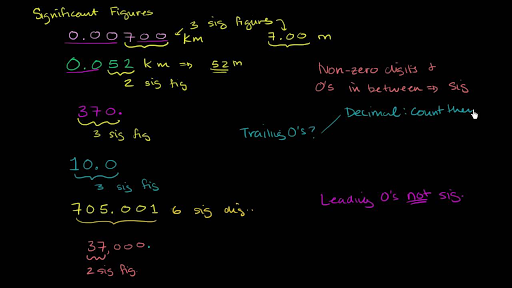 Significant Figures
3 sig figures
0.00700 km
7.00 m
0.052 km ⇒ 52 m
2 sig fig
Non-zero digits +
0's in between ⇒ sig
370.
3 sig fig
Decimal: count them
Trailing 0's?
10.0
3 sig fig
Leading 0's not sig.
705.001 6 sig dig..
37,000.
2 sig fig.